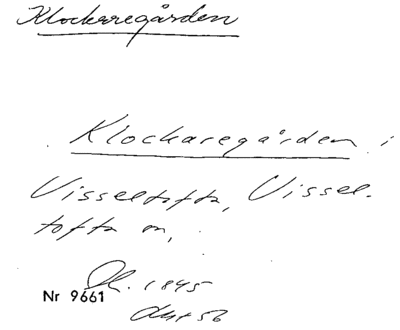 Klockaregården
Klockaregården i
Visseltofta, Vissel-
tofta sn,
Dk. 1845
Nr 9661
akt 56